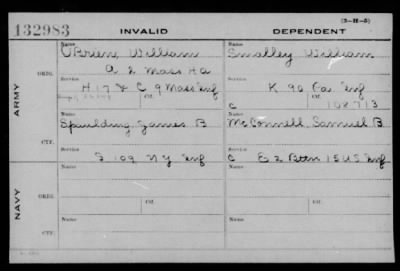 (3-H-5)
132983 INVALID DEPENDENT
Name Name
O'Brien, William Smalley William
A 2 Mass HA
ORIG. Service Service
H 17 & C 9 Mass Inf K 90 Pa Inf
Ctf. Ctf.
C 108713
ARMY
Name Name
Spaulding James B McConnell, Samuel B
CTF. Service Service
I 109 NY Inf C E 2 Batn 15 US Inf
NAVY
Name Name
ORIG. Service Service
Ctf. Ctf.
Name Name
CTF. Service Service